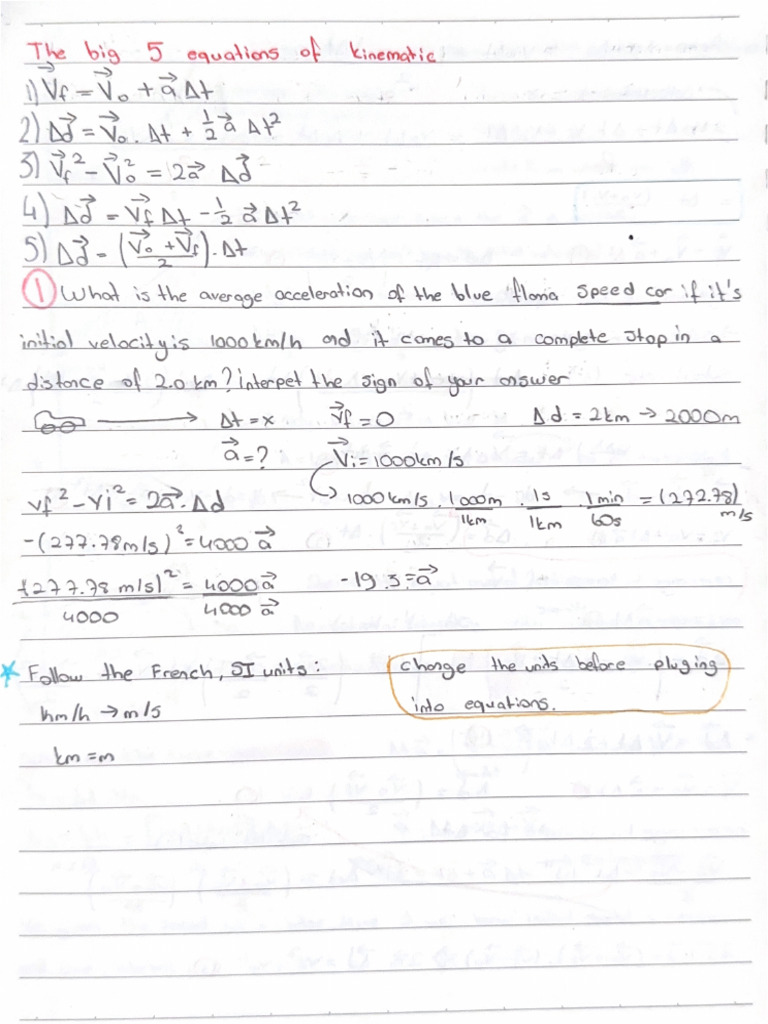 The big 5 equations of kinematic
1) V⃗f = V⃗o + a⃗ Δt
2) Δd⃗ = V⃗o . Δt + ½ a⃗ Δt²
3) V⃗f² - V⃗o² = 2a⃗ Δd⃗
4) Δd⃗ = V⃗f Δt - ½ a⃗ Δt²
5) Δd⃗ = (V⃗o + V⃗f / 2) . Δt
① What is the average acceleration of the blue flama speed car if it's
initial velocity is 1000 km/h and it comes to a complete stop in a
distance of 2.0 km? interpet the sign of your answer
Δt = x V⃗f = 0 Δd = 2km → 2000m
a⃗ = ? V⃗i = 1000km/s
vf² - vi² = 2a⃗ . Δd → 1000 km/s . 1000m/1km . 1s/1km . 1min/60s = (272.78) m/s
-(277.78m/s)² = 4000 a⃗
-(277.78 m/s)² / 4000 = 4000 a⃗ / 4000 a⃗ -19.3 = a⃗
* Follow the French, SI units: change the units before pluging
km/h → m/s into equations.
km = m